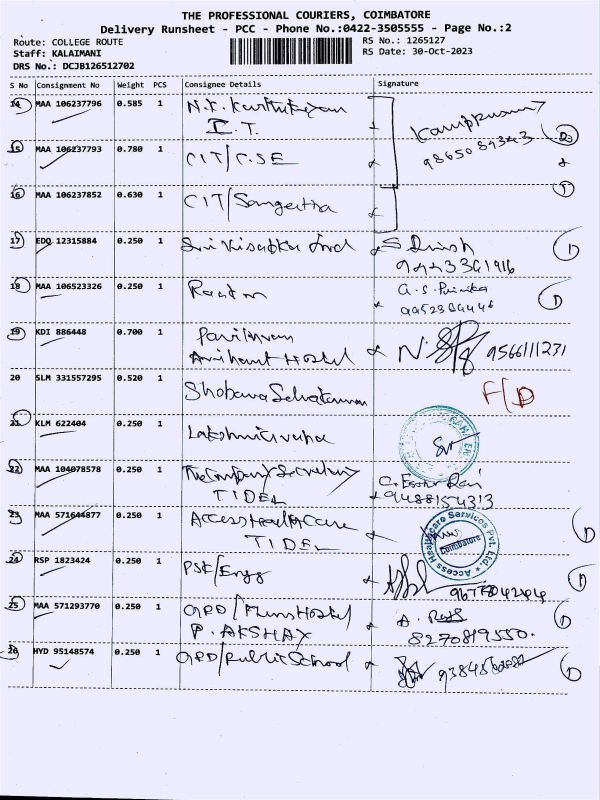 THE PROFESSIONAL COURIERS, COIMBATORE
Delivery Runsheet - PCC - Phone No.:0422-3505555 - Page No.:2
Route: COLLEGE ROUTE
RS No.: 1265127
Staff: KALAIMANI
RS Date: 30-Oct-2023
DRS No.: DCJB126512702
S No Consignment No Weight PCS Consignee Details Signature
14 MAA 106237796 0.585 1
I.T.
9865084343
15 MAA 106237793 0.780 1 CIT/CSE
16 MAA 106237852 0.630 1 CIT/Sangeetha
17 EDQ 12315884 0.250 1
S Dinesh
9443361916
18 MAA 106523326 0.250 1
9952364446
19 KDI 886448 0.700 1
Arihant Hostel
9566111231
20 SLM 331557295 0.520 1 Shobana
F/D
21 KLM 622404 0.250 1
22 MAA 104078578 0.250 1 The Company Secretary
TIDEL
9488154313
23 MAA 571644877 0.250 1 Access Healthcare
TIDEL
Access Healthcare Services Pvt. Ltd. ★
Coimbatore
24 RSP 1823424 0.250 1 PSG/Engg
25 MAA 571293770 0.250 1 GRD/Mens Hostel
P. AKSHAY
8270819550.
26 HYD 95148574 0.250 1 GRD/Public School